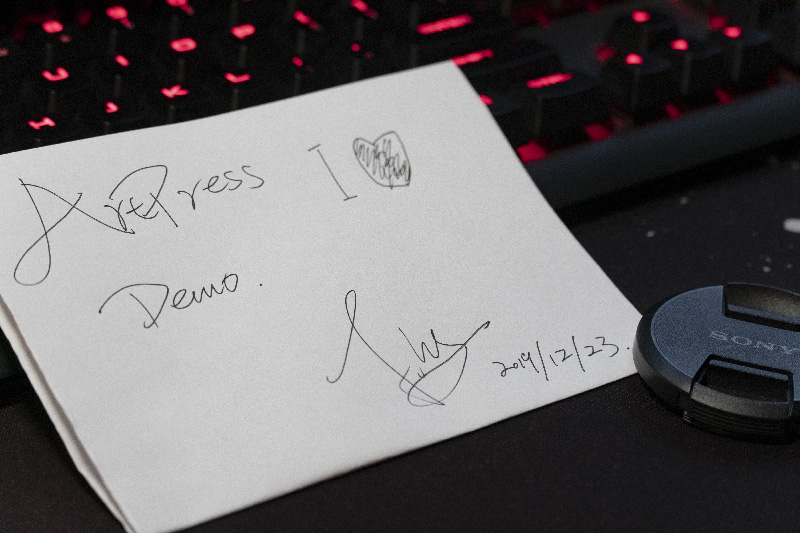 ArtPress I
Demo.
2019/12/23.
SONY
U
H
J
K